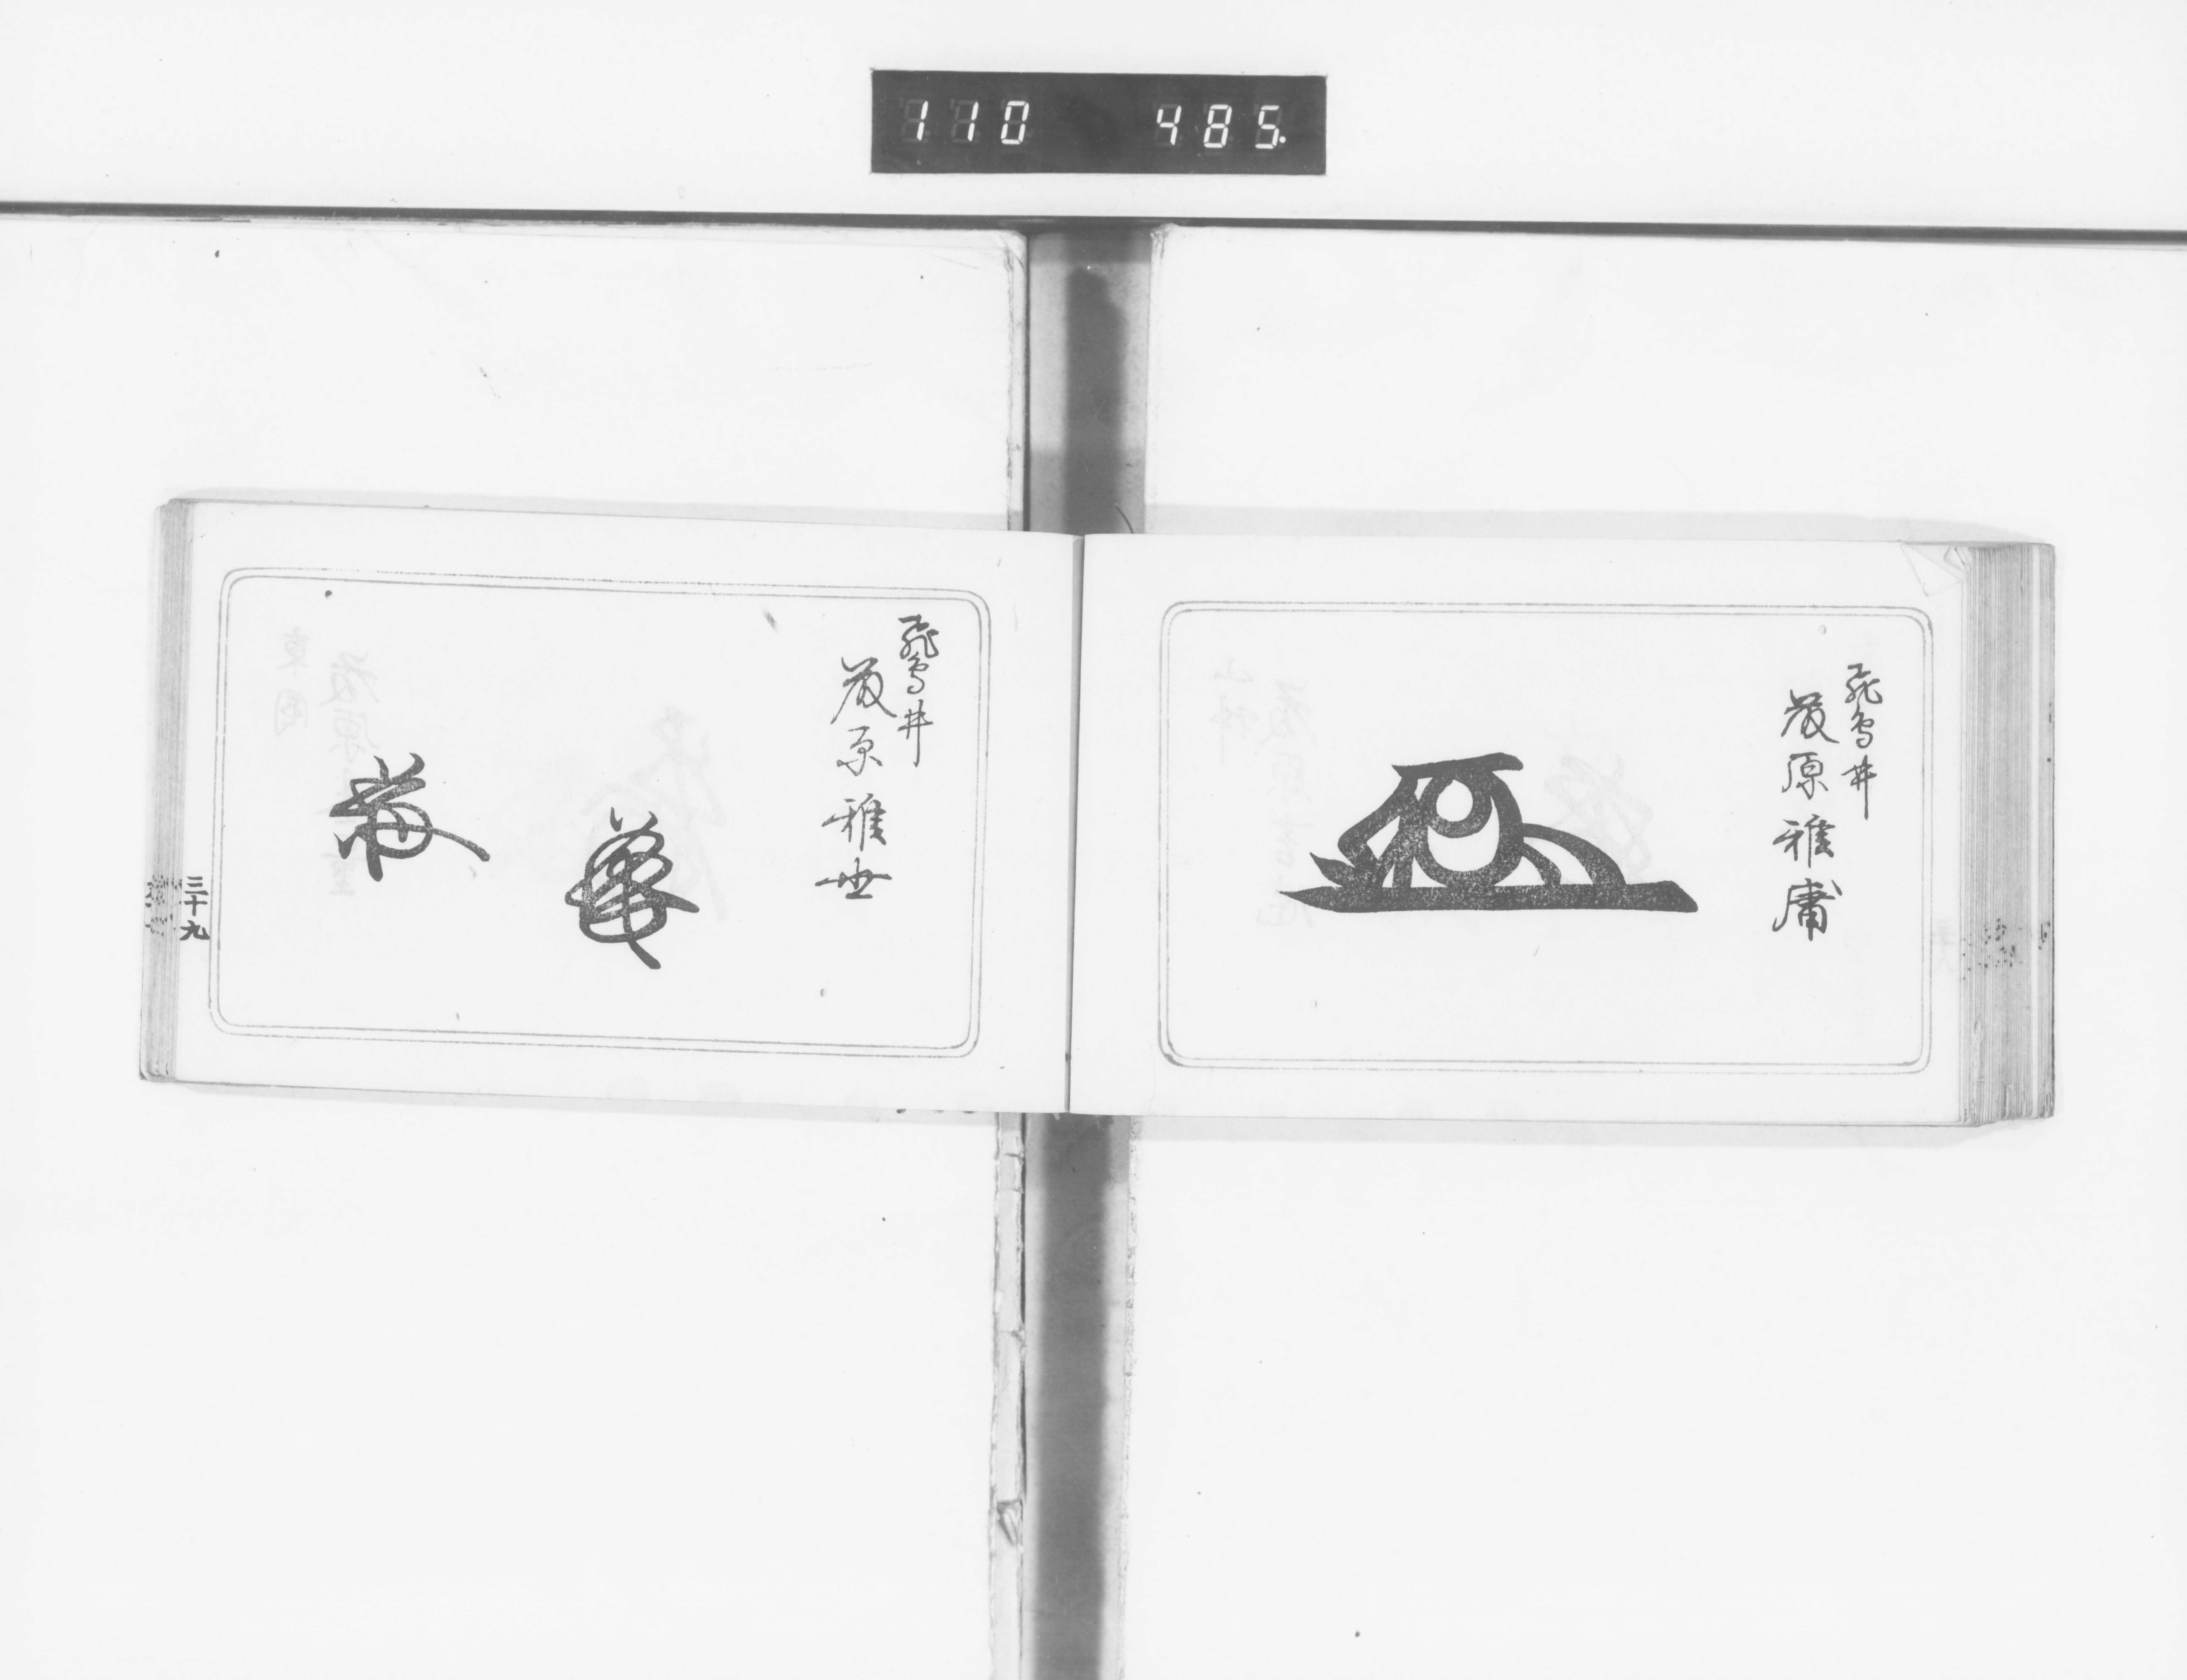 110 485.
飛鳥井
藤原雅庸
飛鳥井
藤原雅世
三十九